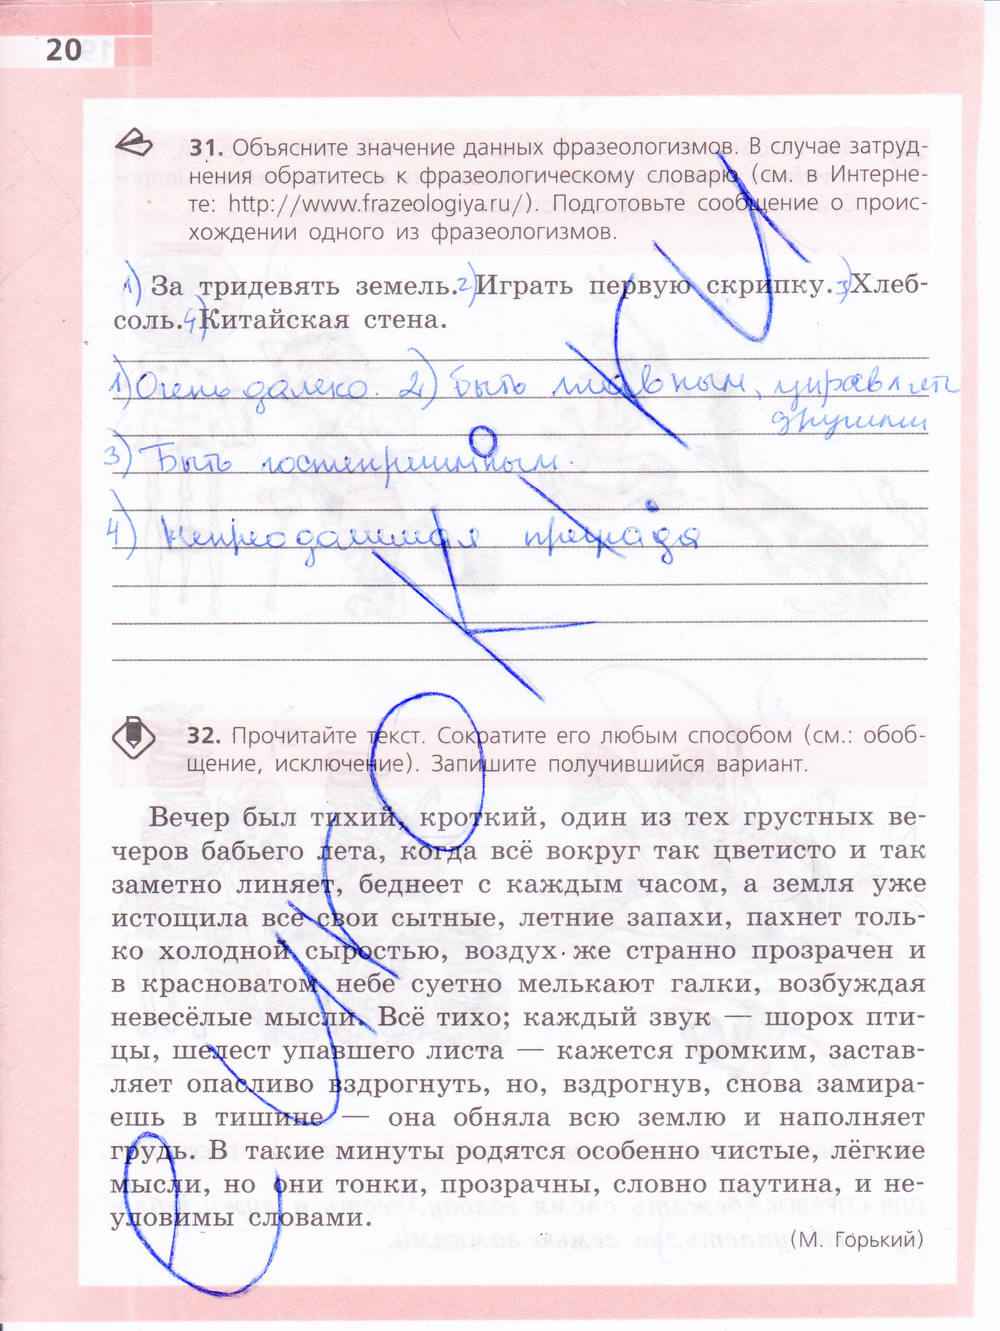 20
31. Объясните значение данных фразеологизмов. В случае затруд-
нения обратитесь к фразеологическому словарю (см. в Интерне-
те: http://www.frazeologiya.ru/). Подготовьте сообщение о проис-
хождении одного из фразеологизмов.
1) За тридевять земель. 2) Играть первую скрипку. 3) Хлеб-
соль. 4) Китайская стена.
1) Очень далеко. 2) Быть главным, управлять
другими
3) Быть гостеприимным.
4) Непреодолимая преграда
32. Прочитайте текст. Сократите его любым способом (см.: обоб-
щение, исключение). Запишите получившийся вариант.
Вечер был тихий, кроткий, один из тех грустных ве-
черов бабьего лета, когда всё вокруг так цветисто и так
заметно линяет, беднеет с каждым часом, а земля уже
истощила все свои сытные, летние запахи, пахнет толь-
ко холодной сыростью, воздух же странно прозрачен и
в красноватом небе суетно мелькают галки, возбуждая
невесёлые мысли. Всё тихо; каждый звук — шорох пти-
цы, шелест упавшего листа — кажется громким, застав-
ляет опасливо вздрогнуть, но, вздрогнув, снова замира-
ешь в тишине — она обняла всю землю и наполняет
грудь. В такие минуты родятся особенно чистые, лёгкие
мысли, но они тонки, прозрачны, словно паутина, и не-
уловимы словами.
(М. Горький)